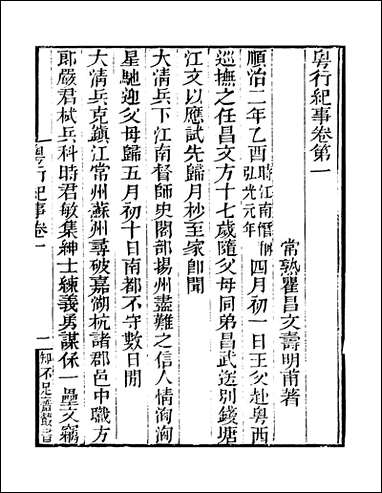 粵行紀事卷第一
常熟瞿昌文壽明甫著
順治二年乙酉時江南僭稱弘光元年四月初一日王父赴粵西
巡撫之任昌文方十七歲隨父母同弟昌武送別錢塘
江文以應試先歸月杪至家卽聞
大清兵下江南督師史閣部揚州盡難之信人情洶洶
星馳迎父母歸五月初十日南都不守數日間
大清兵克鎮江常州蘇州尋破嘉湖杭諸郡邑中職方
郎嚴君栻兵科時君敏集紳士練義勇謀保一壘文竊
粵行紀事卷一
一
知不足齋叢書